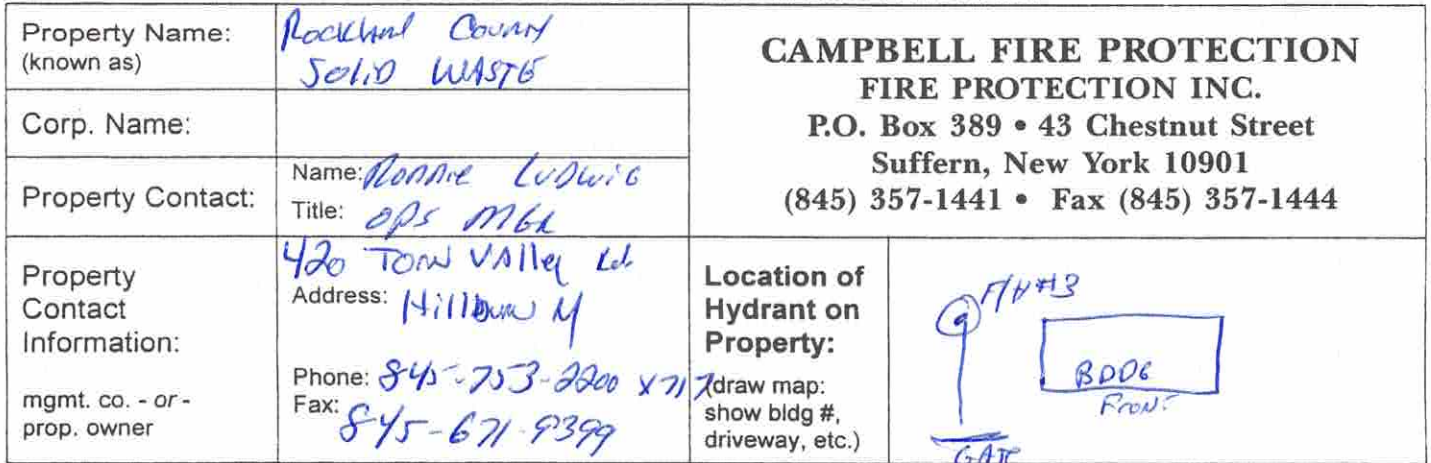 Property Name:
(known as)
Rockland County
Solid WASTE
Corp. Name:
Property Contact:
Name: Ronnie Ludwig
Title: OPS MGR
Property
Contact
Information:
mgmt. co. - or -
prop. owner
420 Torn Valley Rd.
Address: Hillburn NY
Phone: 845-753-2200 x717
Fax: 845-671-9399
CAMPBELL FIRE PROTECTION
FIRE PROTECTION INC.
P.O. Box 389 • 43 Chestnut Street
Suffern, New York 10901
(845) 357-1441 • Fax (845) 357-1444
Location of
Hydrant on
Property:
(draw map:
show bldg #,
driveway, etc.)
F/H #3
BDDG
Front
GATE